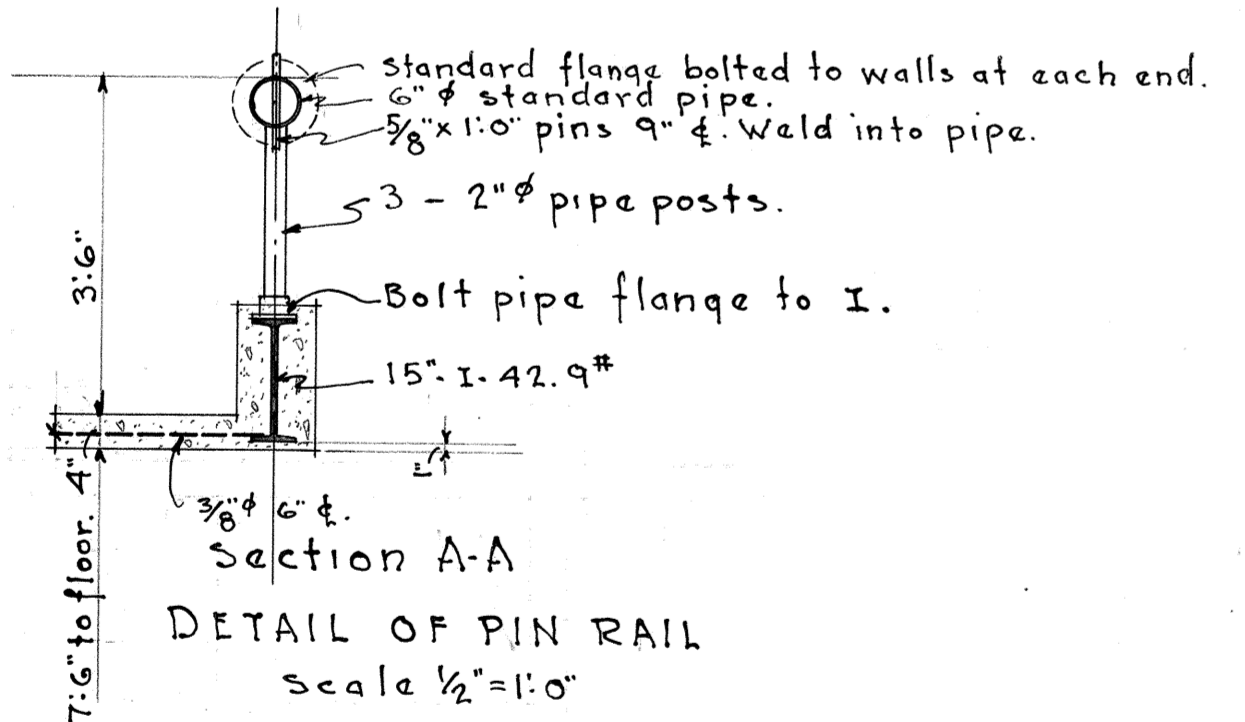 standard flange bolted to walls at each end.
6" ϕ standard pipe.
5/8" x 1'-0" pins 9" ℄. Weld into pipe.
3 - 2" ϕ pipe posts.
3'-6"
Bolt pipe flange to I.
15"- I - 42.9#
1"
4"
3/8" ϕ 6" ℄.
7'-6" to floor.
Section A-A
DETAIL OF PIN RAIL
scale 1/2" = 1'-0"